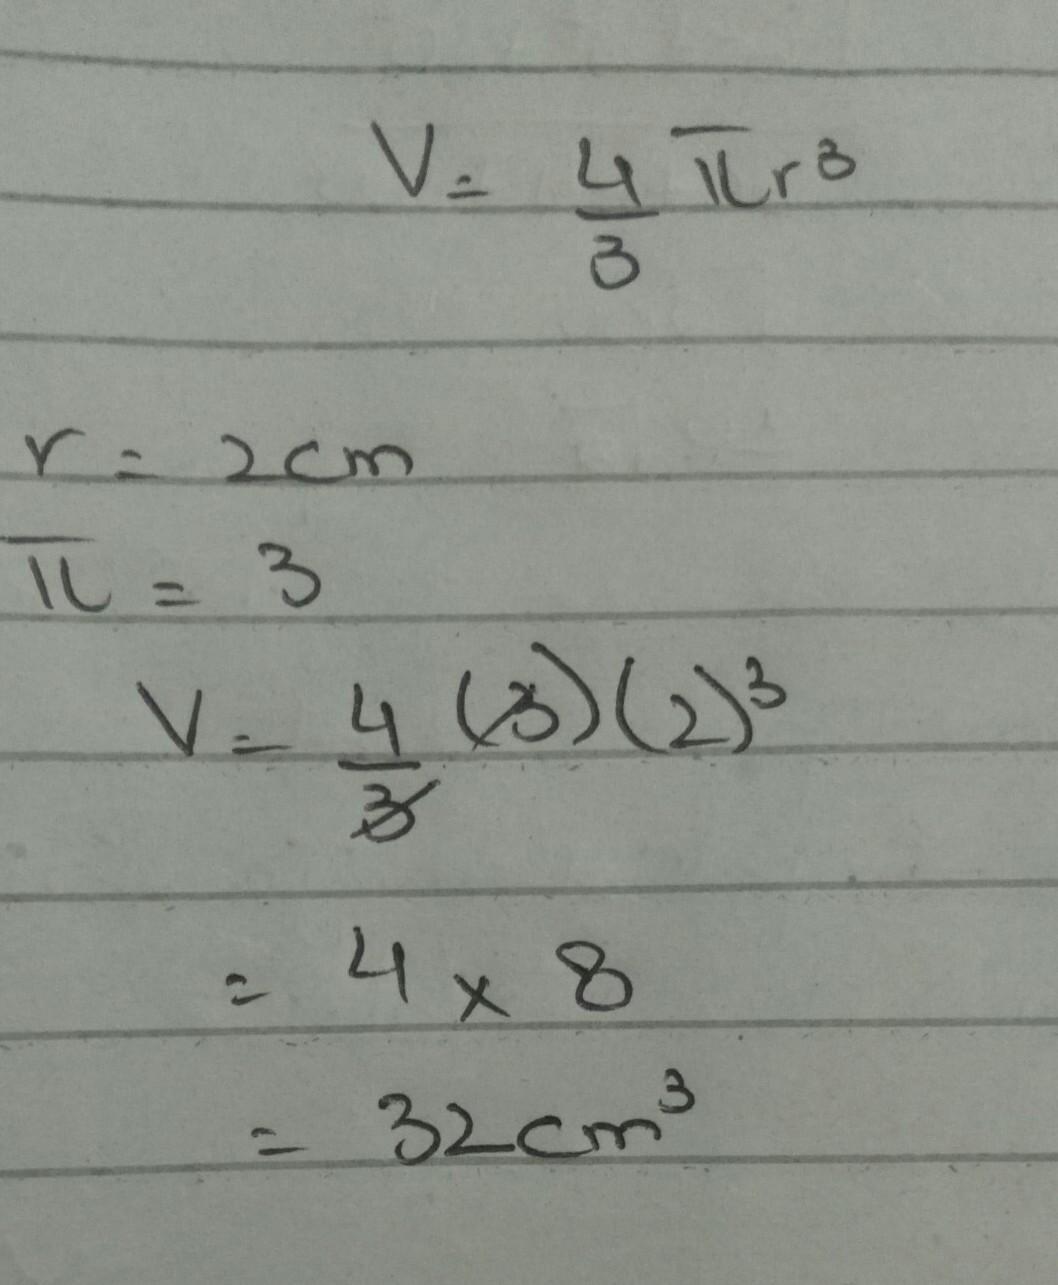 V = 4/3 πr³
r = 2cm
π = 3
V = 4/3 (3)(2)³
= 4 × 8
= 32cm³